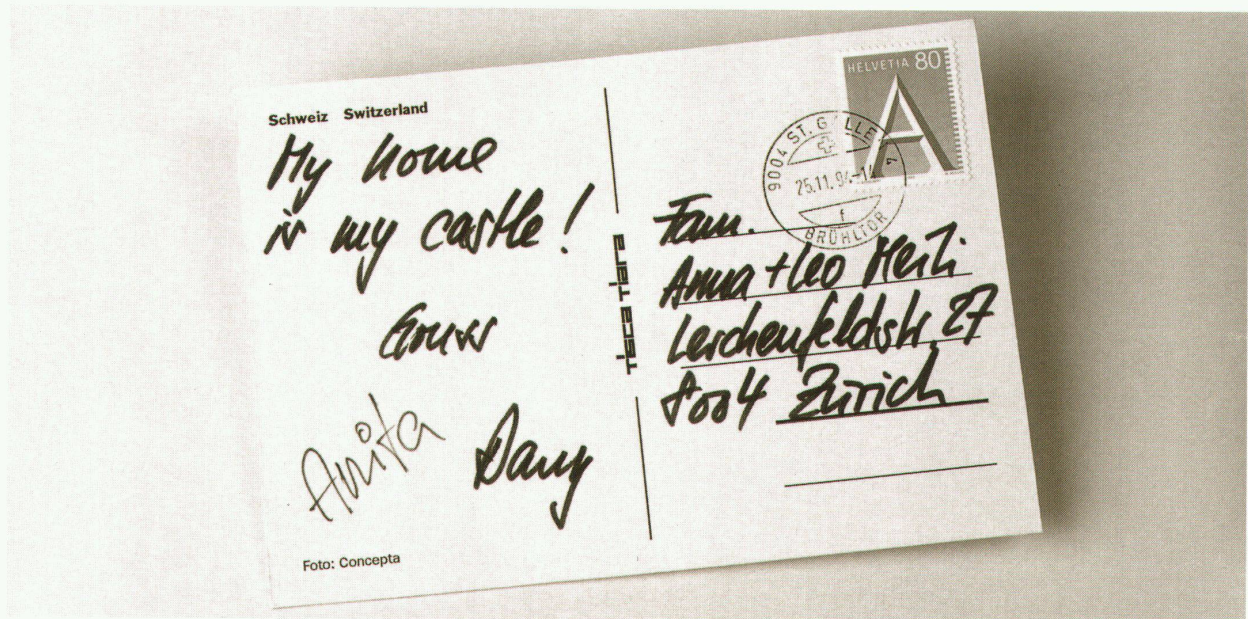 Schweiz Switzerland
My home
is my castle!
Gruss
Anita
Dany
Foto: Concepta
tisca tiara
HELVETIA 80
A
9004 ST. GALLEN
25.11.94-14
f
BRÜHLTOR
Fam.
Anna + Leo Meili
Lerchenfeldstr. 27
8004 Zürich